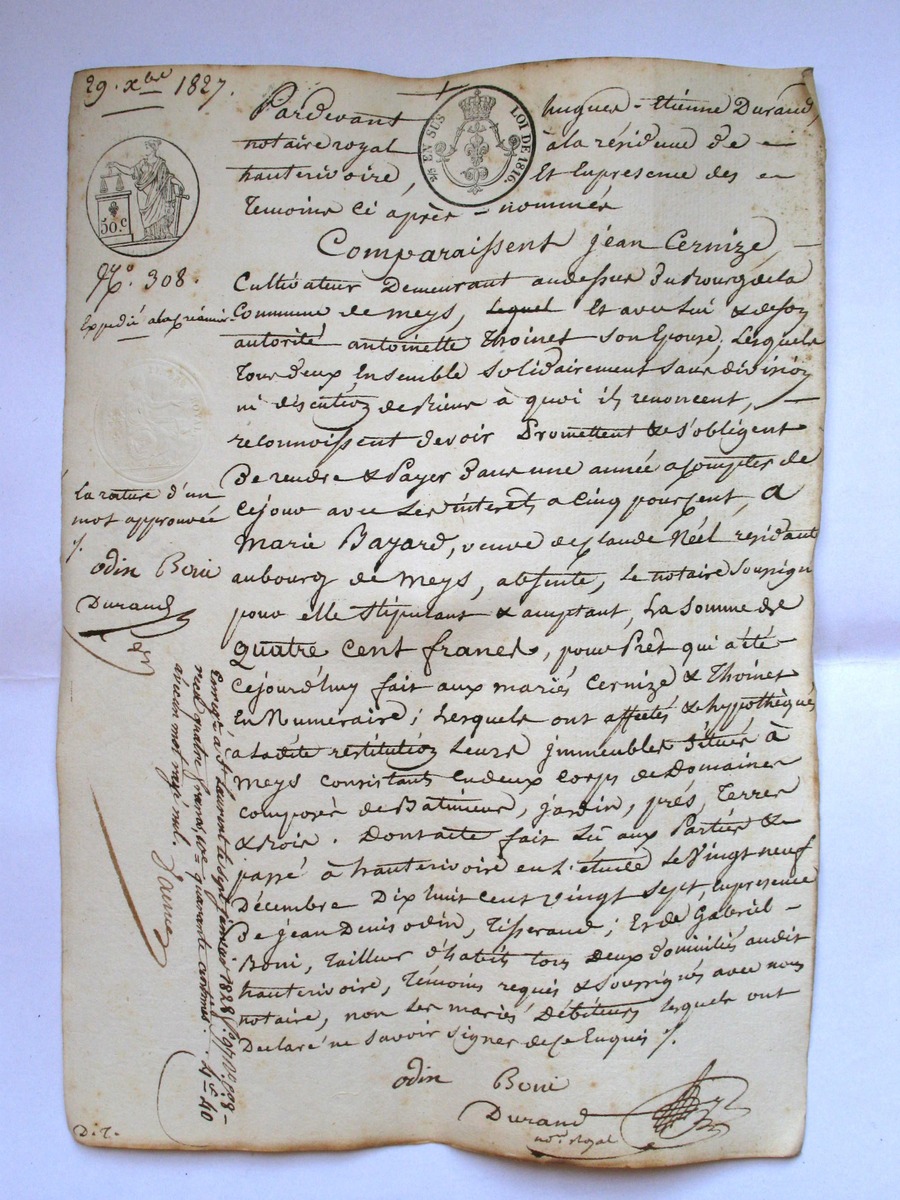 29. xbre 1827.
Pardevant hugues-Etienne Durand,
notaire royal à la résidence de
hauterivoire, Et Enpresence des
Temoins ci après-nommés
¼ EN SUS LOI DE 1816.
50.C
Comparaissent jean Cernize,
N.o 308.
Expedié
Cultivateur Demeurant audessus Du Bourg de la
Commune de meys, Lequel Et avec Lui & de son
autorité antoinette Thoinet son Epouse; Lesquels
Tous deux Ensemble solidairement sans division
ni discution de Biens à quoi ils renoncent,
reconnoissent devoir Promettent & s'obligent
De rendre & Payer Dans une année a compter de
cejour avec Les intérêts a Cinq pour cent, a
Marie Bayard, veuve de Claude Néel residante
aubourg de meys, absente, Le notaire Soussigné
pour elle stipulant & acceptant, La Somme de
quatre cent francs, pour Prêt qui a été
Cejourd'huy fait aux mariés Cernize & Thoinet
En Numeraire; Lesquels ont affectés & hypothèqués
a Ladite restitution Leurs jmmeubles Situés à
Meys consistants Endeux corps de Domaines
composés de Batiments, jardin, prés, Terres
& Bois. Dont acte fait Lû aux Parties &
passé à hauterivoire en L'étude Le Vingt neuf
Décembre Dix huit cent vingt Sept, Enpresence
De jean Denis odin, Tisserand; Et de Gabriel
Boni, Tailleur d'habits tous deux Domiciliés audit
hauterivoire, Témoins requis & Soussignés avec nous
notaire, non Les mariés Débiteurs Lesquels ont
Declaré ne savoir signer de ce Enquis ./.
La rature d'un
mot approuvée
./.
odin Boni
Durand
Enregré à St Laurent le sept janvier 1828 fo
reçu quatre francs, dixe quarante centimes. 4f 40
aucun mot rayé nul.
odin Boni
Durand
nore Royal
D.T.